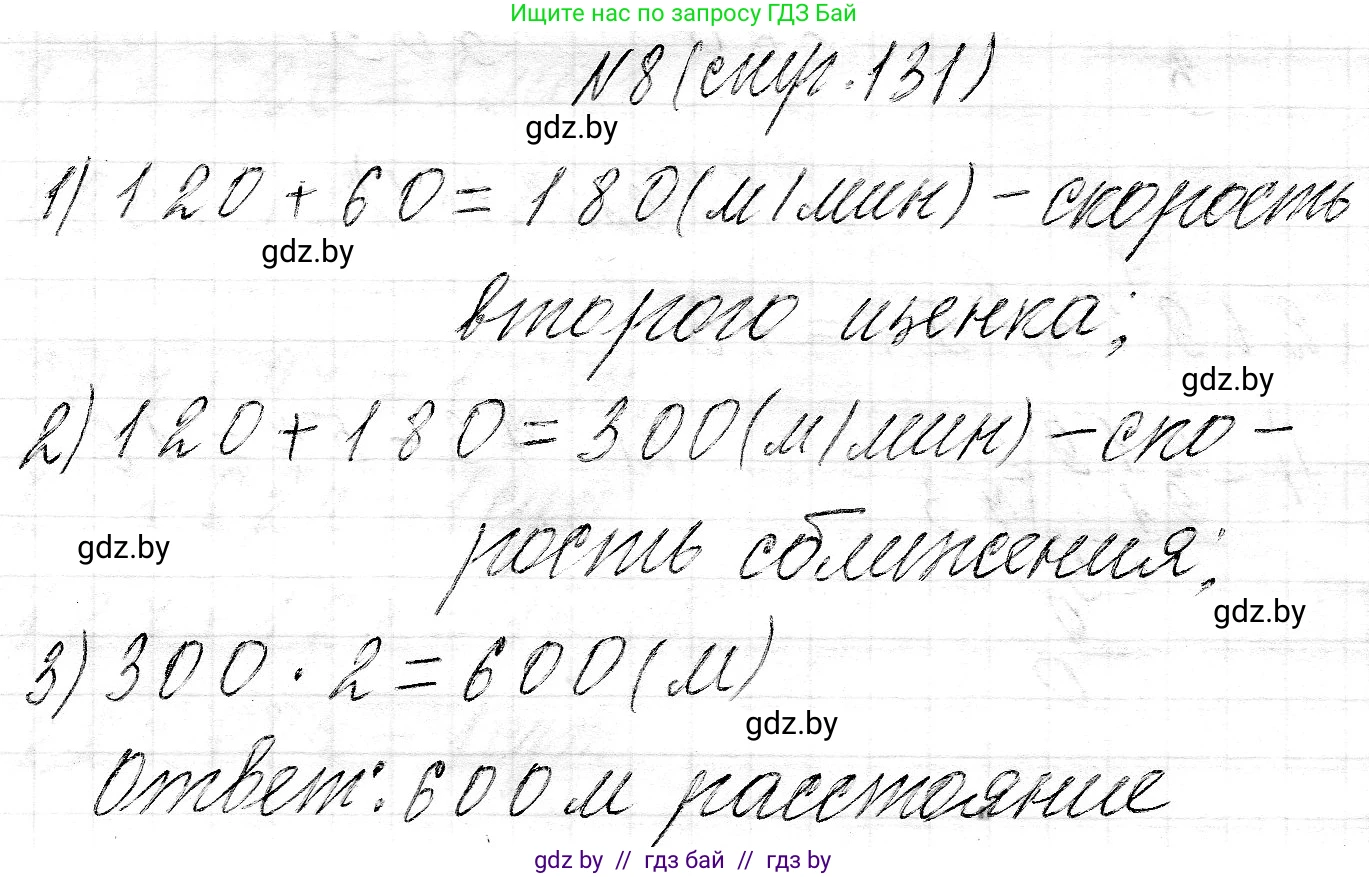 Ищите нас по запросу ГДЗ Бай
№8 (стр. 131)
gdz.by
1) 120 + 60 = 180 (м/мин) - скорость
gdz.by
второго щенка;
gdz.by
2) 120 + 180 = 300 (м/мин) - ско-
рость сближения;
gdz.by
gdz.by
3) 300 · 2 = 600 (м)
gdz.by
Ответ: 600 м расстояние
gdz by // гдз бай // гдз by